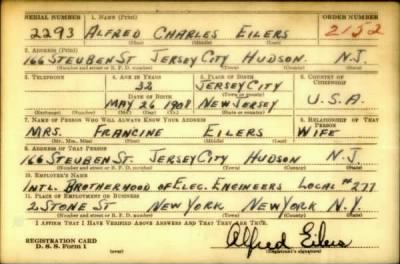 SERIAL NUMBER 1. NAME (Print) ORDER NUMBER
2293 ALFRED CHARLES EILERS 2152
(First) (Middle) (Last)
2. ADDRESS (Print)
166 STEUBEN ST JERSEY CITY HUDSON N.J.
(Number and street or R. F. D. number) (Town) (County) (State)
3. TELEPHONE 4. AGE IN YEARS 5. PLACE OF BIRTH 6. COUNTRY OF CITIZENSHIP
32 JERSEY CITY
DATE OF BIRTH (Town or county)
MAY 26 1908 NEW JERSEY U.S.A.
(Exchange) (Number) (Mo.) (Day) (Yr.) (State or country)
7. NAME OF PERSON WHO WILL ALWAYS KNOW YOUR ADDRESS 8. RELATIONSHIP OF THAT PERSON
MRS. FRANCINE EILERS WIFE
(Mr., Mrs., Miss) (First) (Middle) (Last)
9. ADDRESS OF THAT PERSON
166 STEUBEN ST. JERSEY CITY HUDSON N.J.
(Number and street or R. F. D. number) (Town) (County) (State)
10. EMPLOYER'S NAME
INTL. BROTHERHOOD OF ELEC. ENGINEERS LOCAL NO 277
11. PLACE OF EMPLOYMENT OR BUSINESS
2 STONE ST NEW YORK NEW YORK N.Y.
(Number and street or R. F. D. number) (Town) (County) (State)
I AFFIRM THAT I HAVE VERIFIED ABOVE ANSWERS AND THAT THEY ARE TRUE.
REGISTRATION CARD
D. S. S. Form 1 (over) Alfred Eilers
(Registrant's signature)